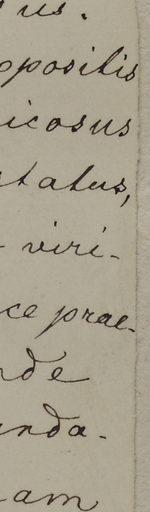 us.
opositis
icosus
tatus,
viri-
ce prae-
nde
unda-
am